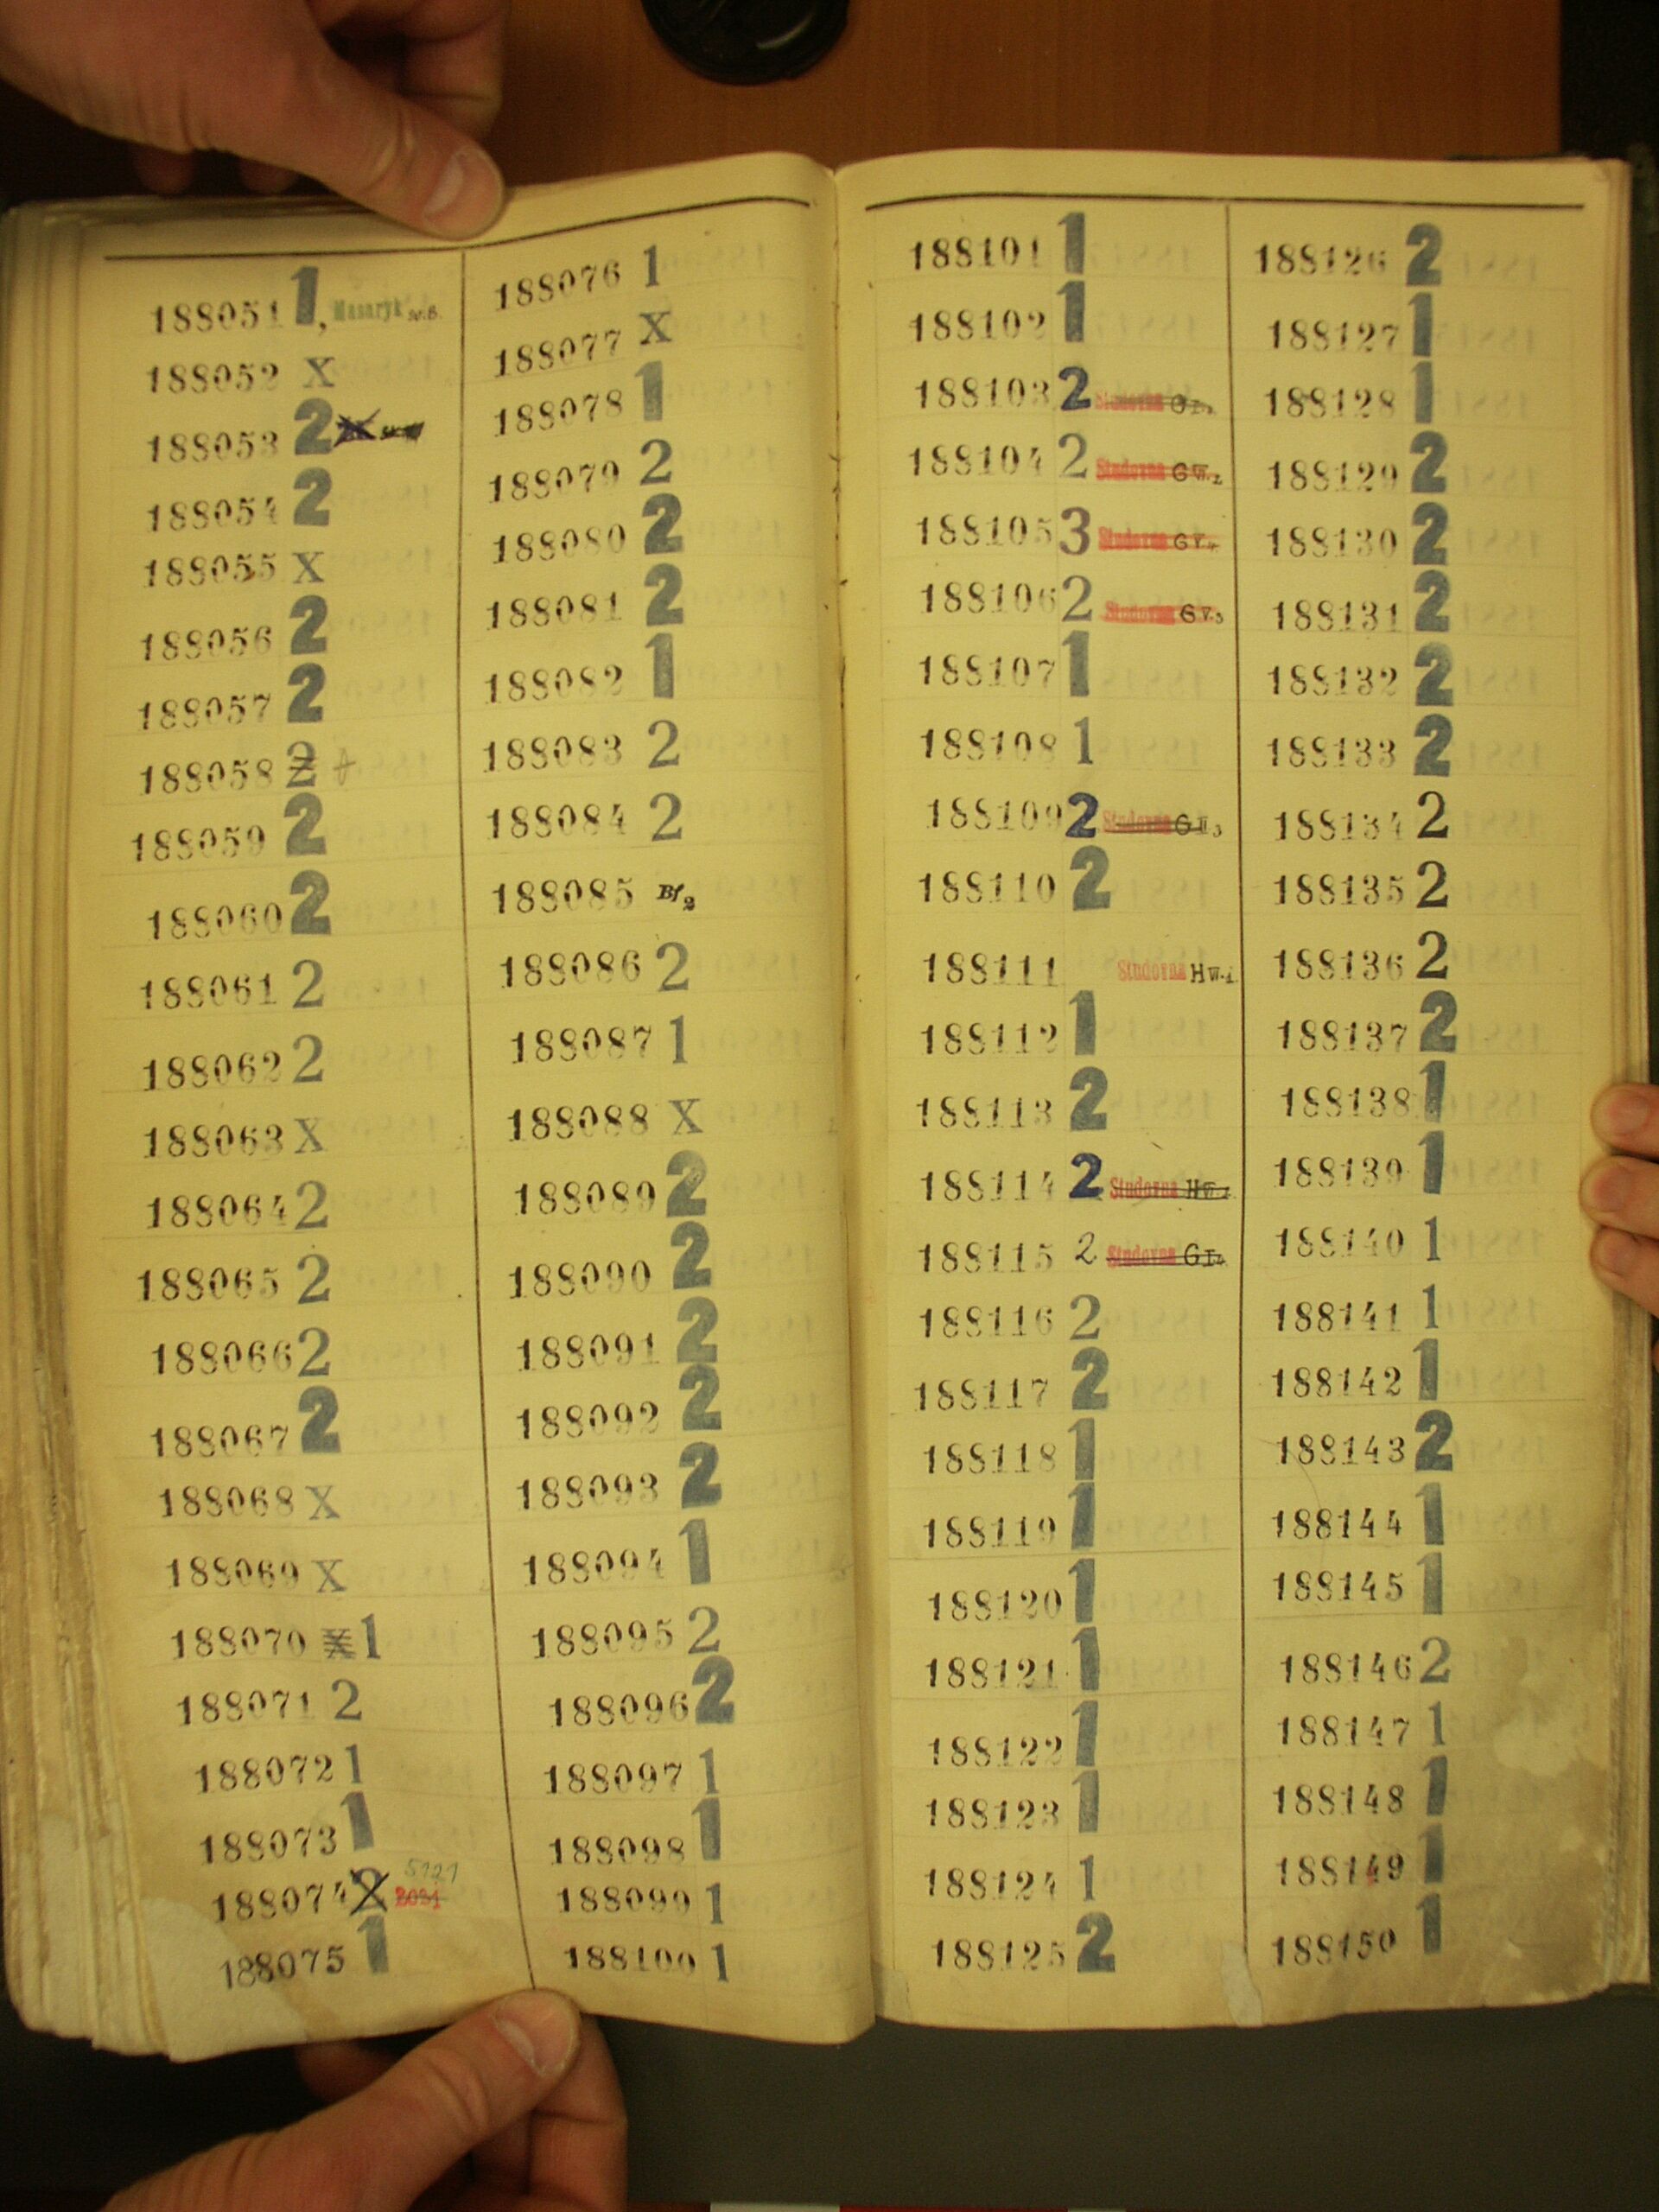 188051 1, Masaryk
188052 X
188053 2
188054 2
188055 X
188056 2
188057 2
188058 2
188059 2
188060 2
188061 2
188062 2
188063 X
188064 2
188065 2
188066 2
188067 2
188068 X
188069 X
188070 X 1
188071 2
188072 1
188073 1
188074 2 5121
188075 1
188076 1
188077 X
188078 1
188079 2
188080 2
188081 2
188082 1
188083 2
188084 2
188085 Bf2
188086 2
188087 1
188088 X
188089 2
188090 2
188091 2
188092 2
188093 2
188094 1
188095 2
188096 2
188097 1
188098 1
188099 1
188100 1
188101 1
188102 1
188103 2 Studovna
188104 2 Studovna
188105 3 Studovna
188106 2 Studovna G V.3
188107 1
188108 1
188109 2 Studovna
188110 2
188111 Studovna
188112 1
188113 2
188114 2 Studovna
188115 2 Studovna
188116 2
188117 2
188118 1
188119 1
188120 1
188121 1
188122 1
188123 1
188124 1
188125 2
188126 2
188127 1
188128 1
188129 2
188130 2
188131 2
188132 2
188133 2
188134 2
188135 2
188136 2
188137 2
188138 1
188139 1
188140 1
188141 1
188142 1
188143 2
188144 1
188145 1
188146 2
188147 1
188148 1
188149 1
188150 1